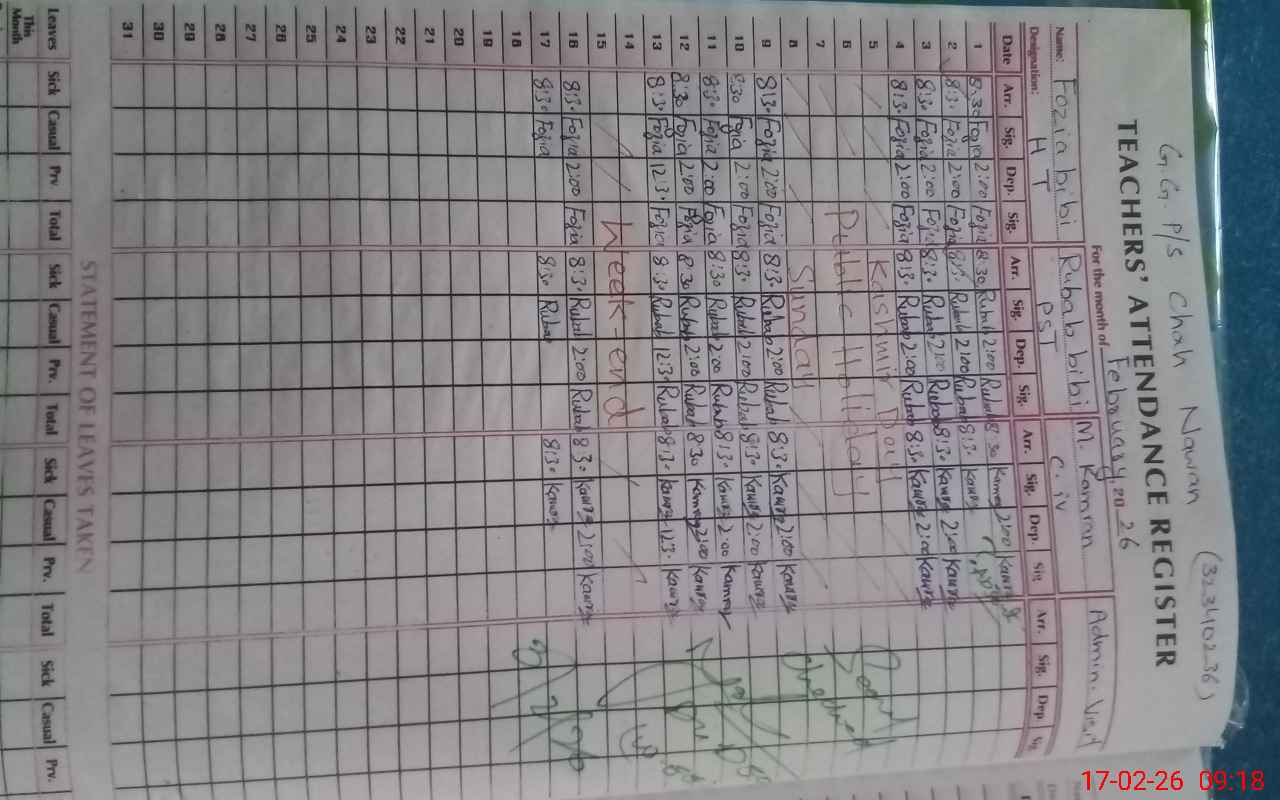 G.G. P/S Chah Nawan (32340236)
TEACHERS' ATTENDANCE REGISTER
For the month of February, 2026
Name: Fozia bibi Rubab bibi M. Kamran Admin. Visit
Designation: H T PST C. iv
Date Arr. Sig. Dep. Sig. Arr. Sig. Dep. Sig. Arr. Sig. Dep. Sig. Arr. Sig. Dep. Sig.
1 8:30 Fozia 2:00 Fozia 8:30 Rubab 2:00 Rubab 8:30 Kamran 2:00 Kamran
2 8:30 Fozia 2:00 Fozia 8:30 Rubab 2:00 Rubab 8:30 Kamran
3 8:30 Fozia 2:00 Fozia 8:30 Rubab 2:00 Rubab 8:30 Kamran 2:00 Kamran
4 8:30 Fozia 2:00 Fozia 8:30 Rubab 2:00 Rubab 8:30 Kamran 2:00 Kamran
5 Kashmir Day
6 Public Holiday
7
8 Sunday
9 8:30 Fozia 2:00 Fozia 8:30 Rubab 2:00 Rubab 8:30 Kamran 2:00 Kamran
10 8:30 Fozia 2:00 Fozia 8:30 Rubab 2:00 Rubab 8:30 Kamran 2:00 Kamran
11 8:30 Fozia 2:00 Fozia 8:30 Rubab 2:00 Rubab 8:30 Kamran 2:00 Kamran
12 8:30 Fozia 2:00 Fozia 8:30 Rubab 2:00 Rubab 8:30 Kamran 2:00 Kamran
13 8:30 Fozia 12:30 Fozia 8:30 Rubab 12:30 Rubab 8:30 Kamran 12:30 Kamran
14 Week-end
15
16 8:30 Fozia 2:00 Fozia 8:30 Rubab 2:00 Rubab 8:30 Kamran 2:00 Kamran
17 8:30 Fozia 8:30 Rubab 8:30 Kamran
18
19
20
21
22
23
24
25
26
27
28
29
30
31
STATEMENT OF LEAVES TAKEN
Leaves Sick Casual Prv. Total Sick Casual Prv. Total Sick Casual Prv. Total Sick Casual Prv.
This Month
17-02-26 09:18